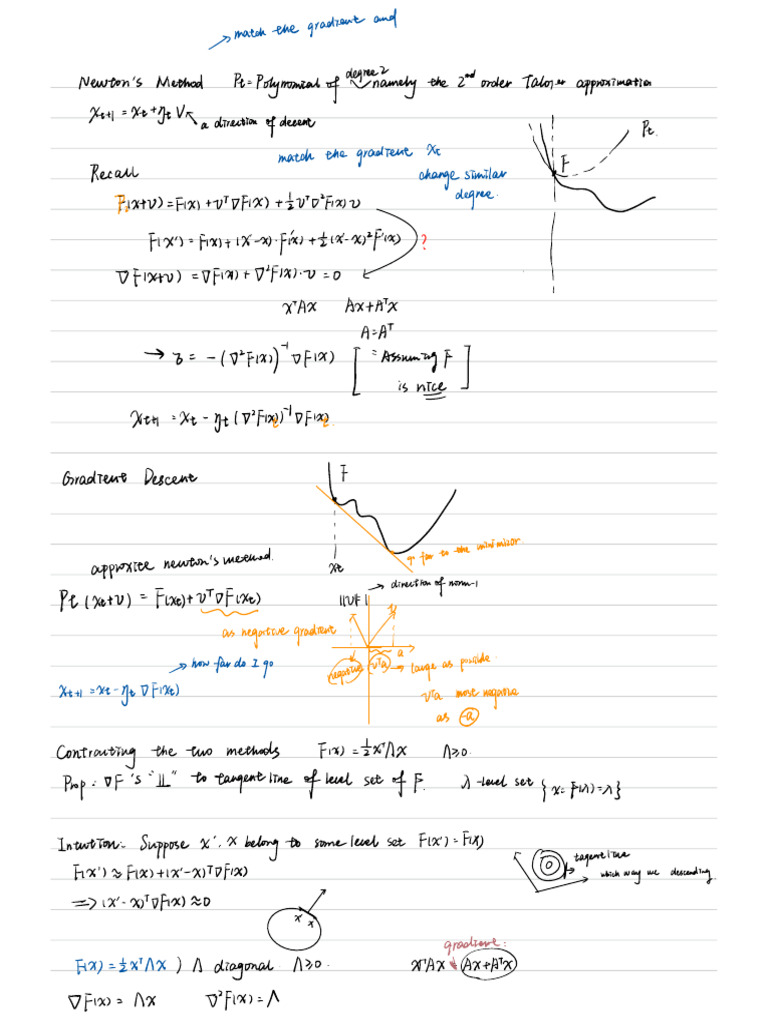 → match the gradient and
Newton's Method Pt = Polynomial of degree 2 namely the 2nd order Talor approximation
Xt+1 = Xt + ηt V ↖ a direction of decent
Pt
match the gradient Xt
F
change similar
degree.
Recall
F(x+v) = F(x) + vᵀ∇F(x) + ½vᵀ∇²F(x)v
F(x') = F(x) + (x'-x)·F'(x) + ½(x'-x)²F''(x) ?
∇F(x+v) = ∇F(x) + ∇²F(x)·v = 0
xᵀAx Ax+Aᵀx
A=Aᵀ
→ v = -(∇²F(x))⁻¹∇F(x) [ = Assuming F
is nice ]
Xt+1 = Xt - ηt(∇²F(xt))⁻¹∇F(xt)
Gradient Descent
F
↑ far to the minimizor
approxite newton's method.
xt
→ direction of norm-1
Pt(xt+v) = F(xt) + vᵀ∇F(xt)
||∇F||
as negative gradient
a
→ how far do I go
negative vᵀa → large as possible
Xt+1 = xt - ηt ∇F(xt)
vᵀa most negative
as -a
Contrasting the two methods F(x) = ½xᵀΛx Λ≥0.
Prop: ∇F's "⊥" to tangent line of level set of F. λ-level set {x = F(λ)=λ}
Intuition: Suppose x', x belong to some level set F(x') = F(x)
F(x') ≈ F(x) + (x'-x)ᵀ∇F(x)
tagent line
which way we descending
=> (x'-x)ᵀ∇F(x) ≈ 0
x x
gradient:
F(x) = ½xᵀΛx ) Λ diagonal Λ≥0. xᵀAx Ax+Aᵀx
∇F(x) = Λx ∇²F(x) = Λ